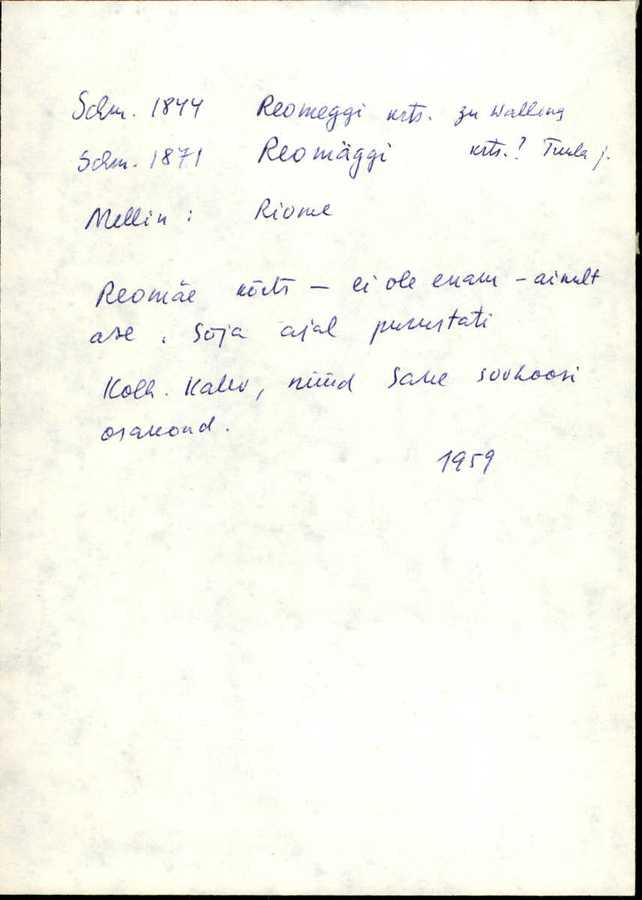 Schm. 1844 Reomeggi krts. zu Walling
Schm. 1871 Reomäggi krts.? Tuula j.
Mellin : Riome
Reomäe kõrts – ei ole enam – ainult
ase. Sõja ajal purustati
Kolh. Kalev, nüüd Saue sovhoosi
osakond.
1959